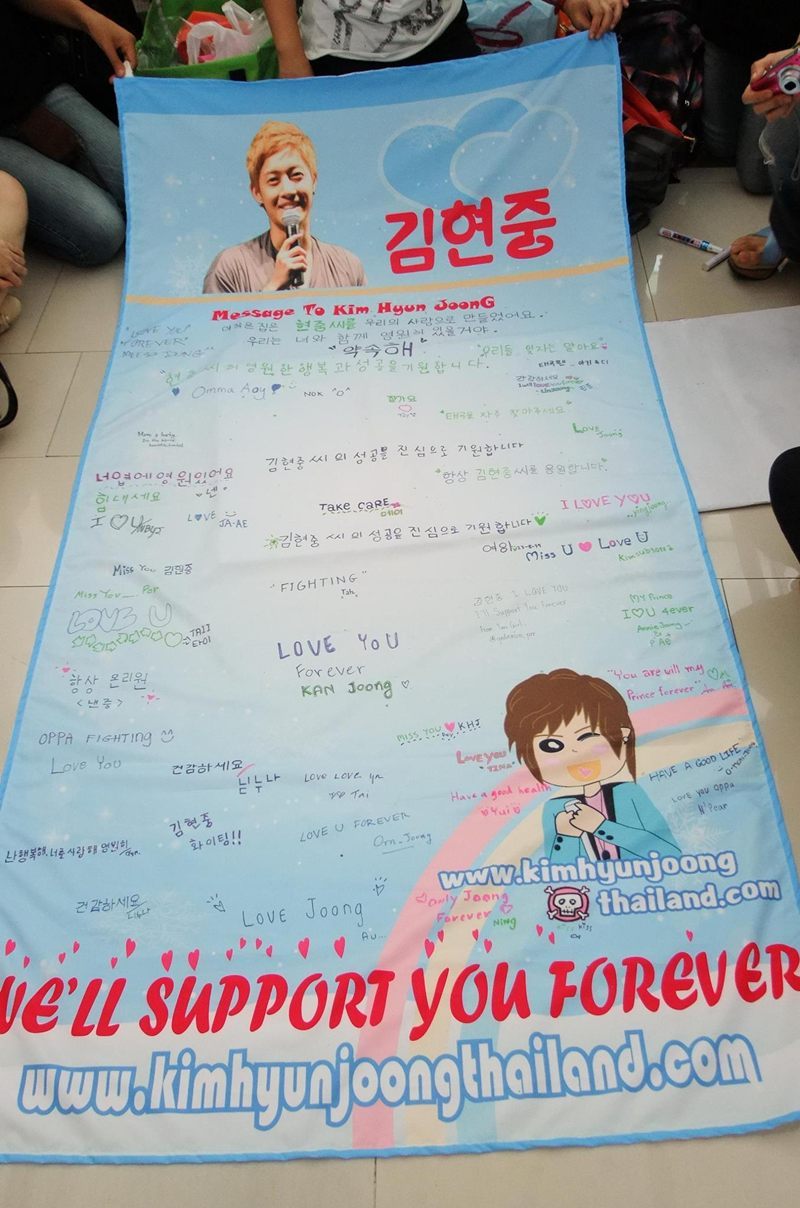 김현중
Message To Kim Hyun JoonG
"LOVE YOU
FOREVER
현중씨를 우리의 사랑으로 만들었어요.
우리는 너와 함께 영원히 있을거야.
"약속해"
현중씨의 영원한 행복과 성공을 기원합니다.
Omma Aoy
NOK ^O^
건강하세요
태국로 자주 찾아주세요
Love
Joong
김현중씨의 성공을 진심으로 기원합니다
"항상 김현중씨를 응원합니다.
너 옆에 영원 있어요
힘내세요
I ♡ U
LOVE
JA-AE
TAKE CARE
I LOVE YOU
김현중씨의 성공을 진심으로 기원합니다
Miss U ♥ Love U
Miss You 김현중
"FIGHTING"
Miss You
Por
LOVE U
TAIJ
타이
김현중 I LOVE YOU
I'll Support You Forever
My Prince
I ♡ U 4ever
LOVE YOU
Forever
KAN Joong ♡
항상 온리원
<낸중>
"You are will my
Prince forever"
OPPA FIGHTING
Love You
MISS YOU ♥ KHJ
Love you
TINA
건강하세요
닌누나
LOVE LOVE
Tai
Have a good health
Yui
HAVE A GOOD LIFE
Love you oppa
N'Pear
김현중
화이팅!!
LOVE U FOREVER
Orn_Joong
건강하세요
LOVE Joong
Au...
Only Joong
Forever
Ning
www.kimhyunjoong
thailand.com
WE'LL SUPPORT YOU FOREVER
www.kimhyunjoongthailand.com